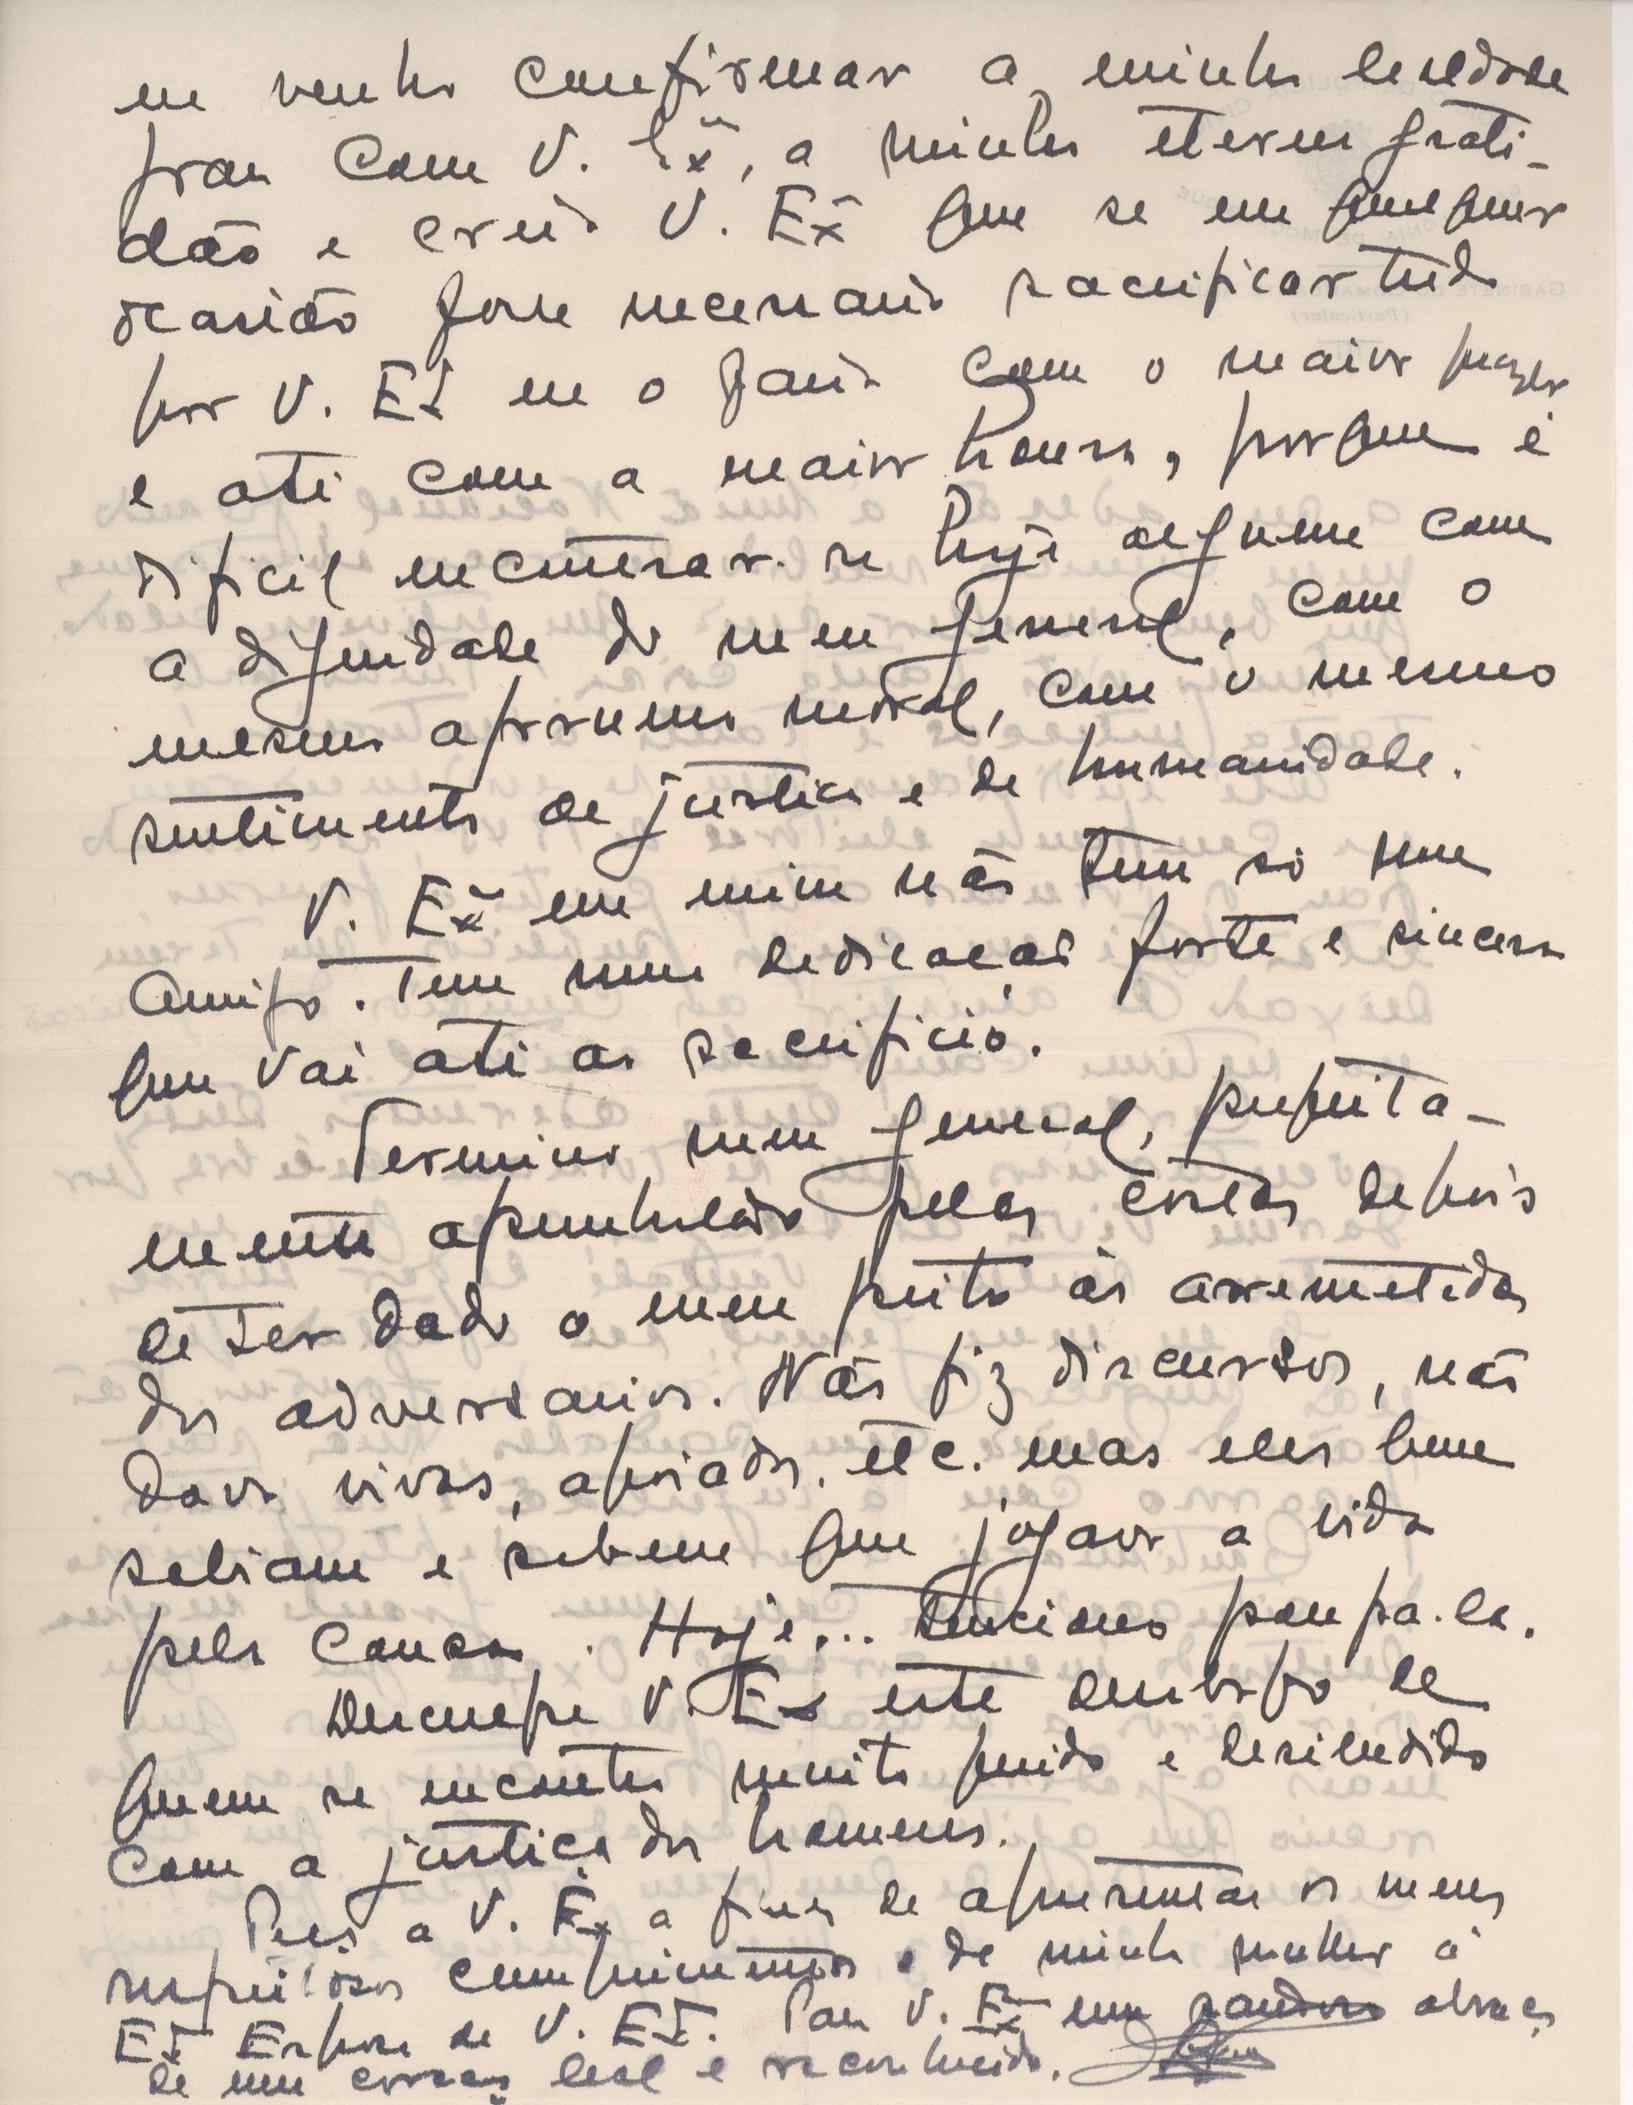 eu venho confirmar a minha lealdade
para com V. Exª, a minha eterna grati-
dão e creia V. Exª que se em qualquer
ocasião fosse necessario sacrificar tudo
por V. Exª eu o faria com o maior prazer
e até com a maior honra, porque é
dificil encontrar-se hoje alguem com
a dignidade do meu general, com o
mesmo aprumo moral, com o mesmo
sentimento de justiça e de humanidade.
V. Exª em mim não tem só um
amigo. Tem uma dedicação forte e sincera
que vai até ao sacrificio.
Termino meu general, perfeita-
mente apunhalado pelas costas depois
de ter dado o meu peito ás arremetidas
dos adversarios. Não fiz discursos, não
dava vivas, apoiados, etc. mas eles bem
sabiam e sabem que jogava a vida
pela causa. Hoje... tenciono poupa-la.
Desculpe V. Exª este desabafo de
quem se encontra muito ferido e desiludido
com a justiça dos homens.
Peço a V. Exª a fineza de apresentar os meus
respeitosos cumprimentos e de minha mulher á
Exª Esposa de V. Exª. Para V. Exª um abraço
de um coração leal e reconhecido.